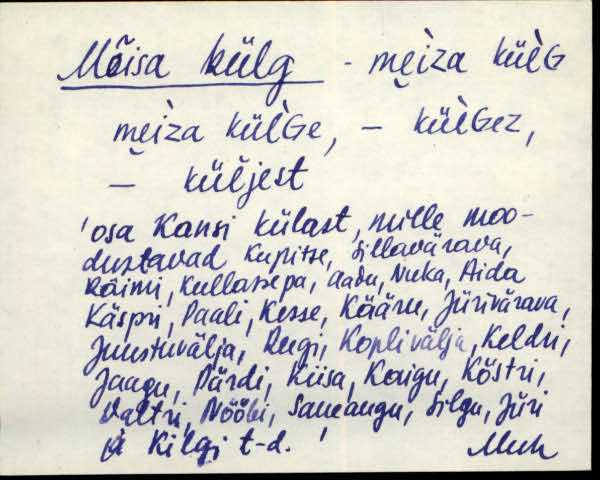 Mõisa külg - mẹ̀iza küèG
mẹ̀iza küèGe, – küèGez,
– küĺjest
'osa Kansi külast, mille moo-
dustavad Kupitse, Sillavärava,
Raimi, Kullassepa, Aadu, Nuka, Aida
Käspri, Paali, Kesse, Kääru, Jürivärava,
Juustuvälja, Reegi, Koplivälja, Keldri,
Jaagu, Pärdi, Kiisa, Kaigu, Köstri,
Valtri, Nööbi, Saueaugu, Silgu, Jüri
ja Kilgi t-d.'
Muh